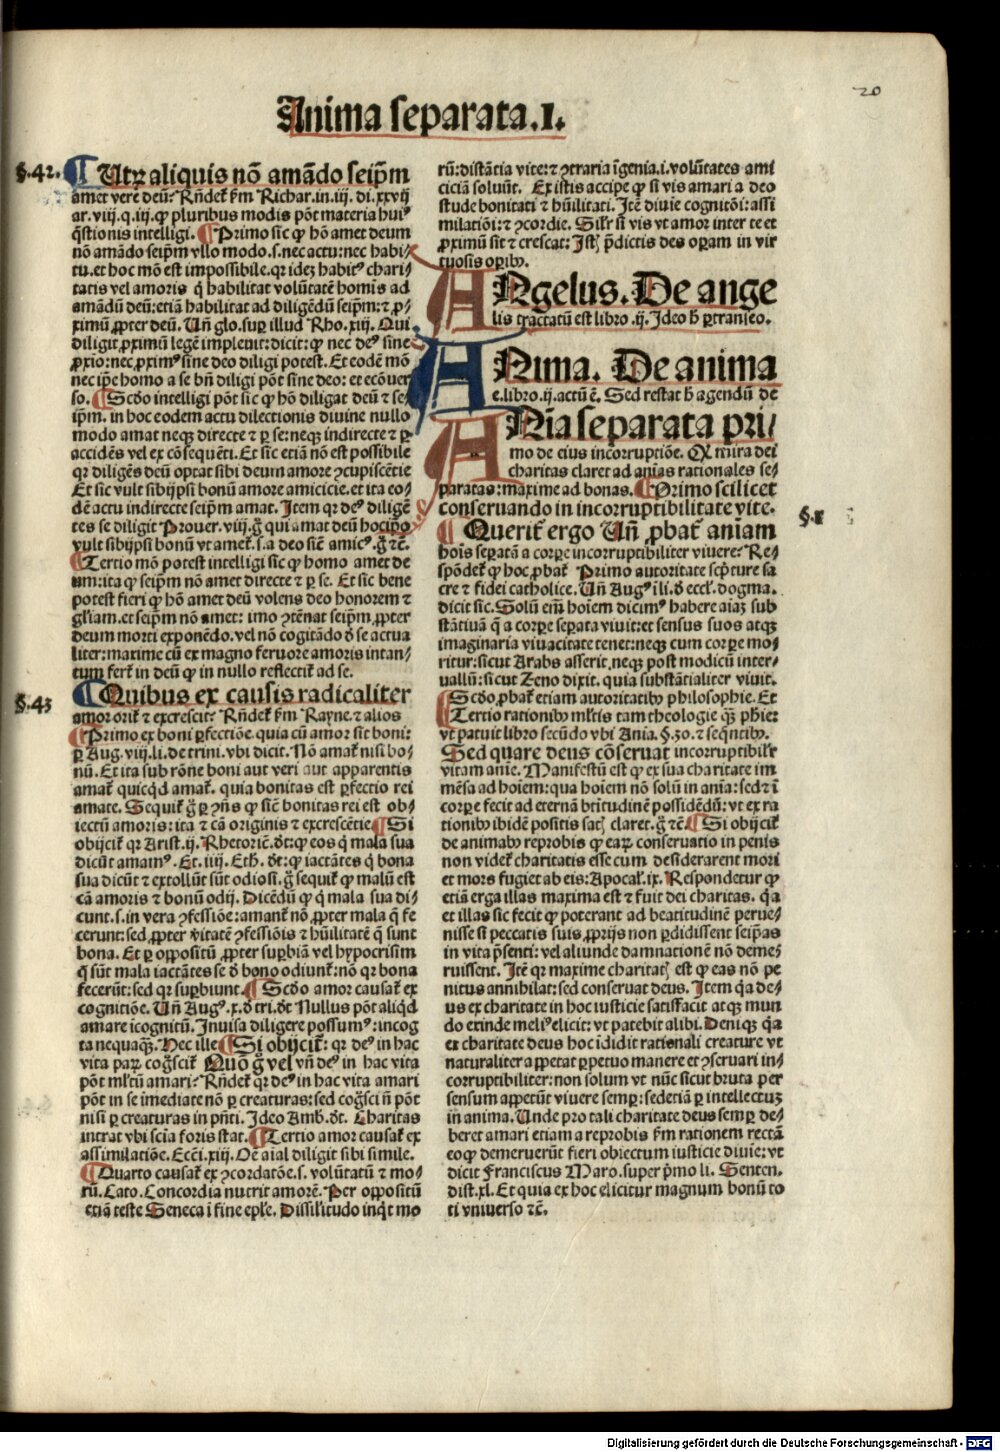 20
Anima separata.I.
§.42. ¶ Utrꝝ aliquis nõ amãdo seip̃m
amet vere deũ: Rñdet̃ ẜm Richar.in.iij. di.xxvij
ar.viij.q.iij.ꝙ pluribus modis põt materia huiꝰ
q̃stionis intelligi. ¶ Primo sic ꝙ hõ amet deum
nõ amãdo seip̃m vllo modo.s.nec actu: nec habi⸗
tu.et hoc mõ est impossibile.qꝛ ideꝫ habitꝰ chari⸗
tatis vel amoris q̃ habilitat volũtatẽ homis ad
amãdũ deũ: etiã habilitat ad diligẽdũ seip̃m: ⁊ ꝓ⸗
ximũ ꝓpter deũ. Uñ glo.suꝑ illud Rho.xiij. Qui
diligit ꝓximũ legẽ impleuit: dicit: ꝙ nec deꝰ sine
ꝓxio: nec ꝓximꝰ sine deo diligi potest. Et eodẽ mõ
nec ip̃e homo a se bñ diligi põt sine deo: et ecõuer
so. ¶ Scd̃o intelligi põt sic ꝙ hõ diligat deũ ⁊ se
ip̃m. in hoc eodem actu dilectionis diuine nullo
modo amat neqꝫ directe ⁊ ꝑ se: neqꝫ indirecte ⁊ ꝑ
accidẽs vel ex cõsequẽti. Et sic etiã nõ est possibile
qꝛ diligẽs deũ optat sibi deum amore ꝯcupiscẽtie
Et sic vult sibijpsi bonũ amore amicicie. et ita eo⸗
dẽ actu indirecte seip̃m amat. Item qꝛ deꝰ diligẽ
tes se diligit Prouer.viij. g̃ qui amat deũ hoc ip̃o
vult sibijpsi bonũ vt amet̃.s.a deo sicẽ amicꝰ. g̃ ⁊c̃.
¶ Tertio mõ potest intelligi sic ꝙ homo amet de
um: ita ꝙ seip̃m nõ amet directe ⁊ ꝑ se. Et sic bene
potest fieri ꝙ hõ amet deũ volens deo honorem ⁊
gl̃iam. et seip̃m nõ amet: imo ꝯtẽnat seip̃m ꝓpter
deum morti exponẽdo. vel nõ cogitãdo ð se actua
liter: maxime cũ ex magno feruore amoris intan⸗
tum fert̃ in deũ ꝙ in nullo reflectit̃ ad se.
§.43 ¶ Quibus ex causis radicaliter
amor orit̃ ⁊ excrescit: Rñdet̃ ẜm Rayne. ⁊ alios
¶ Primo ex boni ꝑfectiõe. quia cũ amor sit boni:
ꝑ Aug.viij.li.de trini.vbi dicit. Nõ amat̃ nisi bo⸗
nũ. Et ita sub rõne boni aut veri aut apparentis
amat̃ quicqd̃ amat̃. quia bonitas est ꝑfectio rei
amate. Sequit̃ g̃ ꝑ ꝯñs ꝙ sicẽ bonitas rei est ob⸗
iectũ amoris: ita ⁊ cã originis ⁊ excrescẽtie ¶ Si
obijcit̃ qꝛ Arist.ij. Rhetoricẽ.ðt: ꝙ eos q̃ mala sua
dicũt amamꝰ. Et.iiij. Eth.ðt: ꝙ iactãtes q̃ bona
sua dicũt ⁊ extollũt sũt odiosi. g̃ sequit̃ ꝙ malũ est
cã amoris ⁊ bonũ odij. Dicẽdũ ꝙ q̃ mala sua di⸗
cunt.s.in vera ꝯfessiõe: amant̃ nõ ꝓpter mala q̃ fe
cerunt: sed ꝓpter v̾itatẽ ꝯfessiõis ⁊ hũilitatẽ q̃ sunt
bona. Et ꝑ oppositũ ꝓpter suꝑbiã vel hypocrisim
q̃ sũt mala iactãtes se ð bono odiunt̃: nõ qꝛ bona
fecerũt: sed qꝛ suꝑbiunt. ¶ Scd̃o amor causat̃ ex
cognitiõe. Uñ Augꝰ.x.ð tri.ðt Nullus põt aliqd̃
amare ĩcognitũ. Inuisa diligere possumꝰ: incog
ta nequaq̃ꝫ. Hec ille ¶ Si obijcit̃: qꝛ deꝰ in hac
vita paꝝ cog̃scit̃ Quõ g̃ vel vñ deꝰ in hac vita
põt ml̃tũ amari: Rñdet̃ qꝛ deꝰ in hac vita amari
põt in se imediate nõ ꝑ creaturas: sed cog̃sci ñ põt
nisi ꝑ creaturas in pñti. Ideo Amb.ðt. Charitas
intrat vbi scĩa foris stat. ¶ Tertio amor causat̃ ex
assimilatiõe. Ecc̃i.xiij. Oẽ aĩal diligit sibi simile.
¶ Quarto causat̃ ex ꝯcordatõe.s. volũtatũ ⁊ mo⸗
rũ. Cato. Concordia nutrit amorẽ. Per oppositũ
etiã teste Seneca ĩ fine ep̃le. Dissil̃itudo inq̃t mo
rũ: distãtia vite: ⁊ ꝯtraria ĩgenia.i. volũtates ami
ciciã soluũt. Ex istis accipe ꝙ si vis amari a deo
stude bonitati ⁊ hũilitati. Itẽ diuie cognitõi: assi
milatiõi: ⁊ ꝯcordie. Sil̃r si vis vt amor inter te et
ꝓximũ sit ⁊ crescat: Istꝫ p̃dictis des oꝑam in vir
tuosis oꝑibꝰ.
ANgelus. De ange
lis tractatũ est libro.ij. Ideo h̃ ꝑtranseo.
ANima. De anima
e.libro.ij.actũ ẽ. Sed restat h̃ agendũ de
ANĩa separata pri⸗
mo de eius incorruptiõe. Q̃ mira dei
charitas claret ad aĩas rationales se⸗
paratas: maxime ad bonas. ¶ Primo scilicet
conseruando in incorruptibilitate vite.
§.1 ¶ Querit̃ ergo Uñ ꝓbat̃ aniam
hoĩs seꝑatã a corꝑe incorruptibiliter viuere: Re⸗
spõdet̃ ꝙ hoc ꝓbat̃ Primo autoritate scp̃ture sa
cre ⁊ fidei catholice. Uñ Augꝰ ĩ li.ð eccl̃. dogma.
dicit sic. Solũ em̃ hoĩem dicimꝰ habere aĩaꝫ sub
stãtiuã q̃ a corꝑe seꝑata viuit: et sensus suos atqꝫ
imaginaria viuacitate tenet: neqꝫ cum corꝑe mo⸗
ritur: sicut Arabs asserit, neqꝫ post modicũ inter⸗
uallũ: sicut Zeno dixit. quia substãtialiter viuit.
¶ Scd̃o ꝓbat̃ etiam autoritatibꝰ philosophie. Et
¶ Tertio rationibꝰ ml̃tis tam theologie q̃ꝫ phie:
vt patuit libro secũdo vbi Anĩa. §.30. ⁊ seq̃ntibꝰ.
Sed quare deus cõseruat incorruptibilr̃
vitam anĩe. Manifestũ est ꝙ ex sua charitate im
mẽsa ad hoĩem: qua hoĩem nõ solũ in anĩa: sed ⁊ ĩ
corꝑe fecit ad eternã btitudinẽ possidẽdũ: vt ex ra
tionibꝰ ibidẽ positis satꝫ claret. g̃ ⁊c̃. ¶ Si obijcit̃
de animabꝰ reprobis ꝙ eaꝝ conseruatio in penis
non videt̃ charitatis esse cum desiderarent mori
et mors fugiet ab eis: Apocal̃.ix. Respondetur ꝙ
etiã erga illas maxima est ⁊ fuit dei charitas. q̃a
et illas sic fecit ꝙ poterant ad beatitudinẽ perue⸗
nisse si peccatis suis ꝓprijs non ꝑdidissent seip̃as
in vita p̃senti: vel aliunde damnationẽ nõ deme⸗
ruissent. Itẽ qꝛ maxime charitatꝫ est ꝙ eas nõ pe
nitus annihilat: sed conseruat deus. Item q̃a de⸗
us ex charitate in hoc iusticie satisfacit atqꝫ mun
do exinde meliꝰ elicit: vt patebit alibi. Deniqꝫ q̃a
ex charitate deus hoc ĩdidit rationali creature vt
naturaliter appetat ꝑpetuo manere et ꝯseruari in⸗
corruptibiliter: non solum vt nũc sicut bruta per
sensum appetũt viuere semꝑ: sed etiã ꝑ intellectuꝫ
in anima. Unde pro tali charitate deus semꝑ de⸗
beret amari etiam a reprobis ẜm rationem rectã
eo ꝙ demeruerũt fieri obiectum iusticie diuie: vt
dicit Franciscus Maro. super p̃mo li. Senten.
dist.xl. Et quia ex hoc elicitur magnum bonũ to
ti vniuerso ⁊c̃.
Digitalisierung gefördert durch die Deutsche Forschungsgemeinschaft - DFG